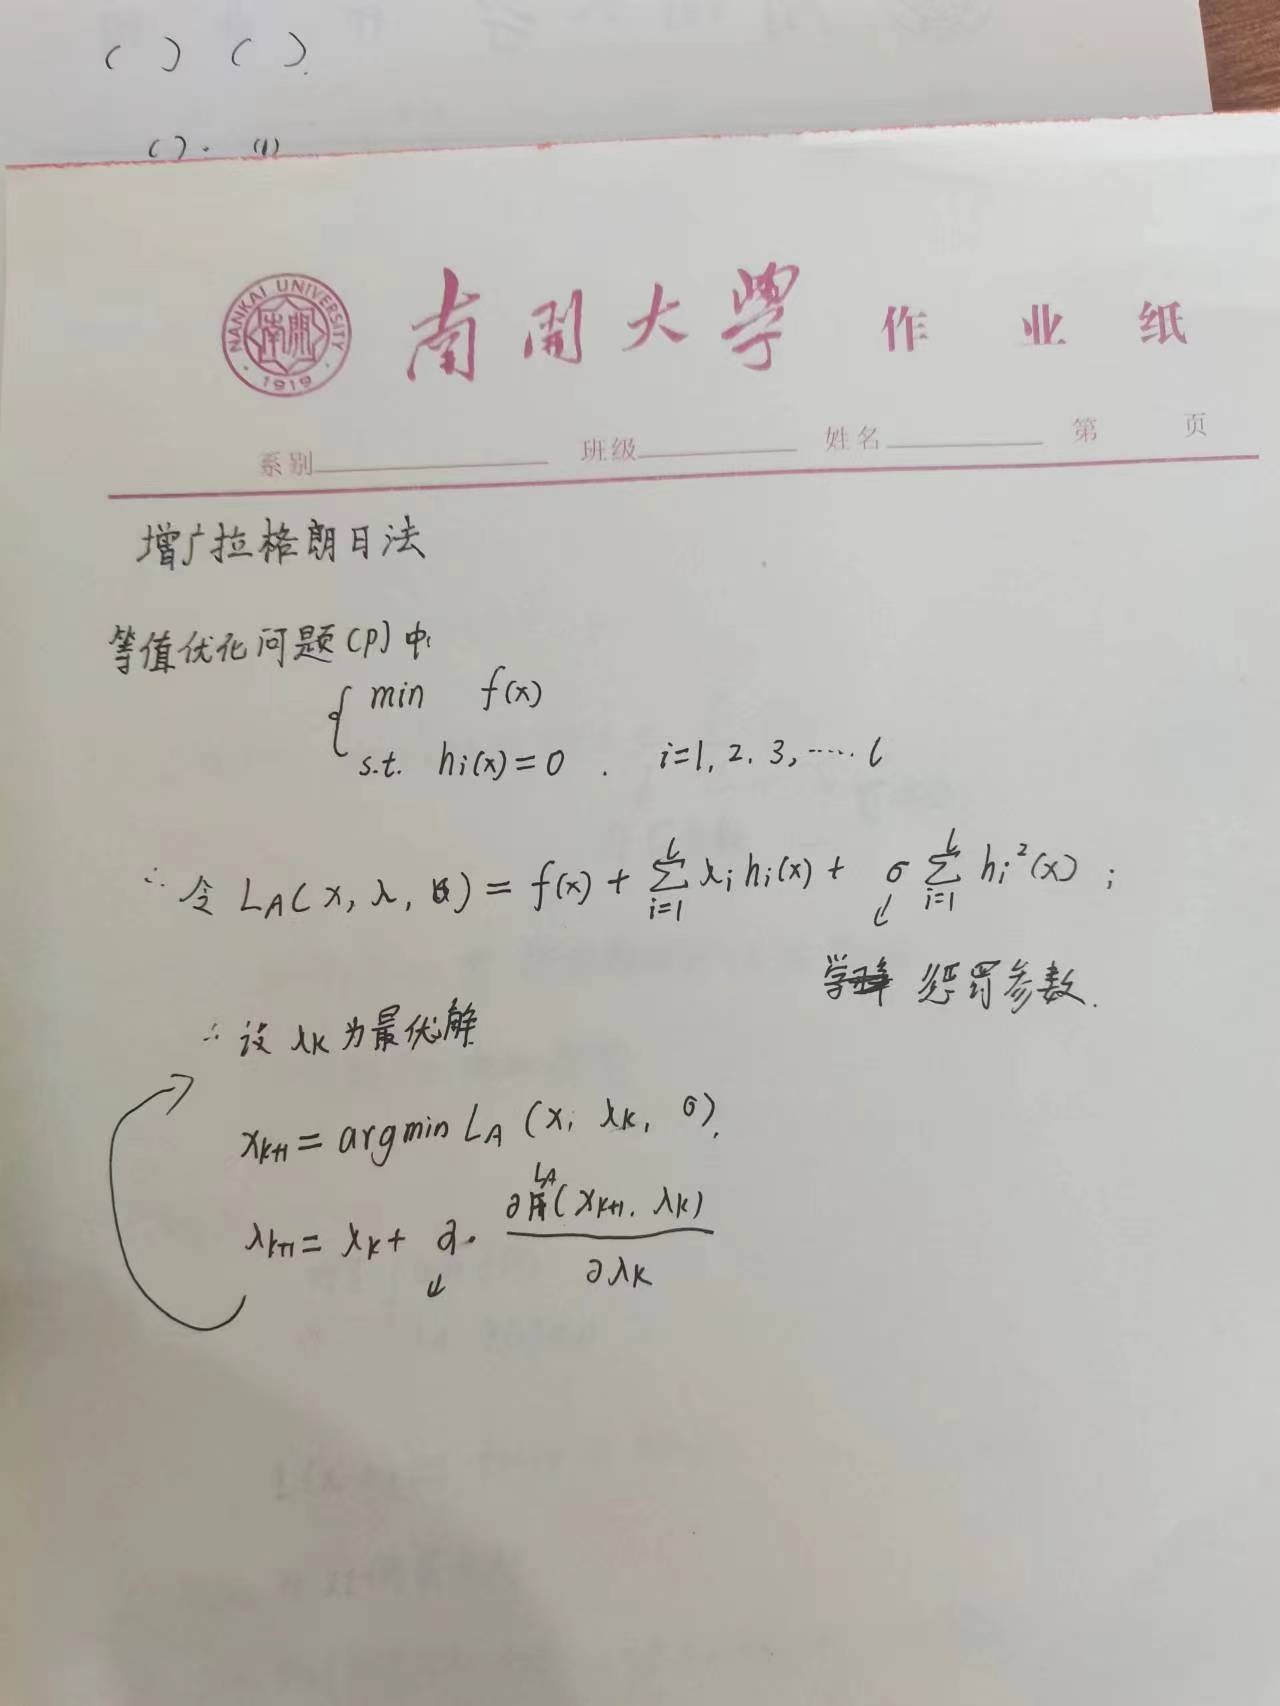 ( ) ( ).
( ). (1)
NANKAI UNIVERSITY
南開
· 1919 ·
南開大學 作业纸
系别 班级 姓名 第 页
增广拉格朗日法
等值优化问题(P)中:
{ min f(x)
s.t. hi(x)=0 . i=1, 2, 3, ····· l
∴ 令 L_A(x, λ, σ) = f(x) + ∑_{i=1}^{l} λi hi(x) + σ ∑_{i=1}^{l} hi²(x) ;
惩罚参数.
∴ 设 λk 为最优解
x_{k+1} = argmin L_A (x, λk, σ).
λ_{k+1} = λk + α · ∂L_A(x_{k+1}, λk) / ∂λk